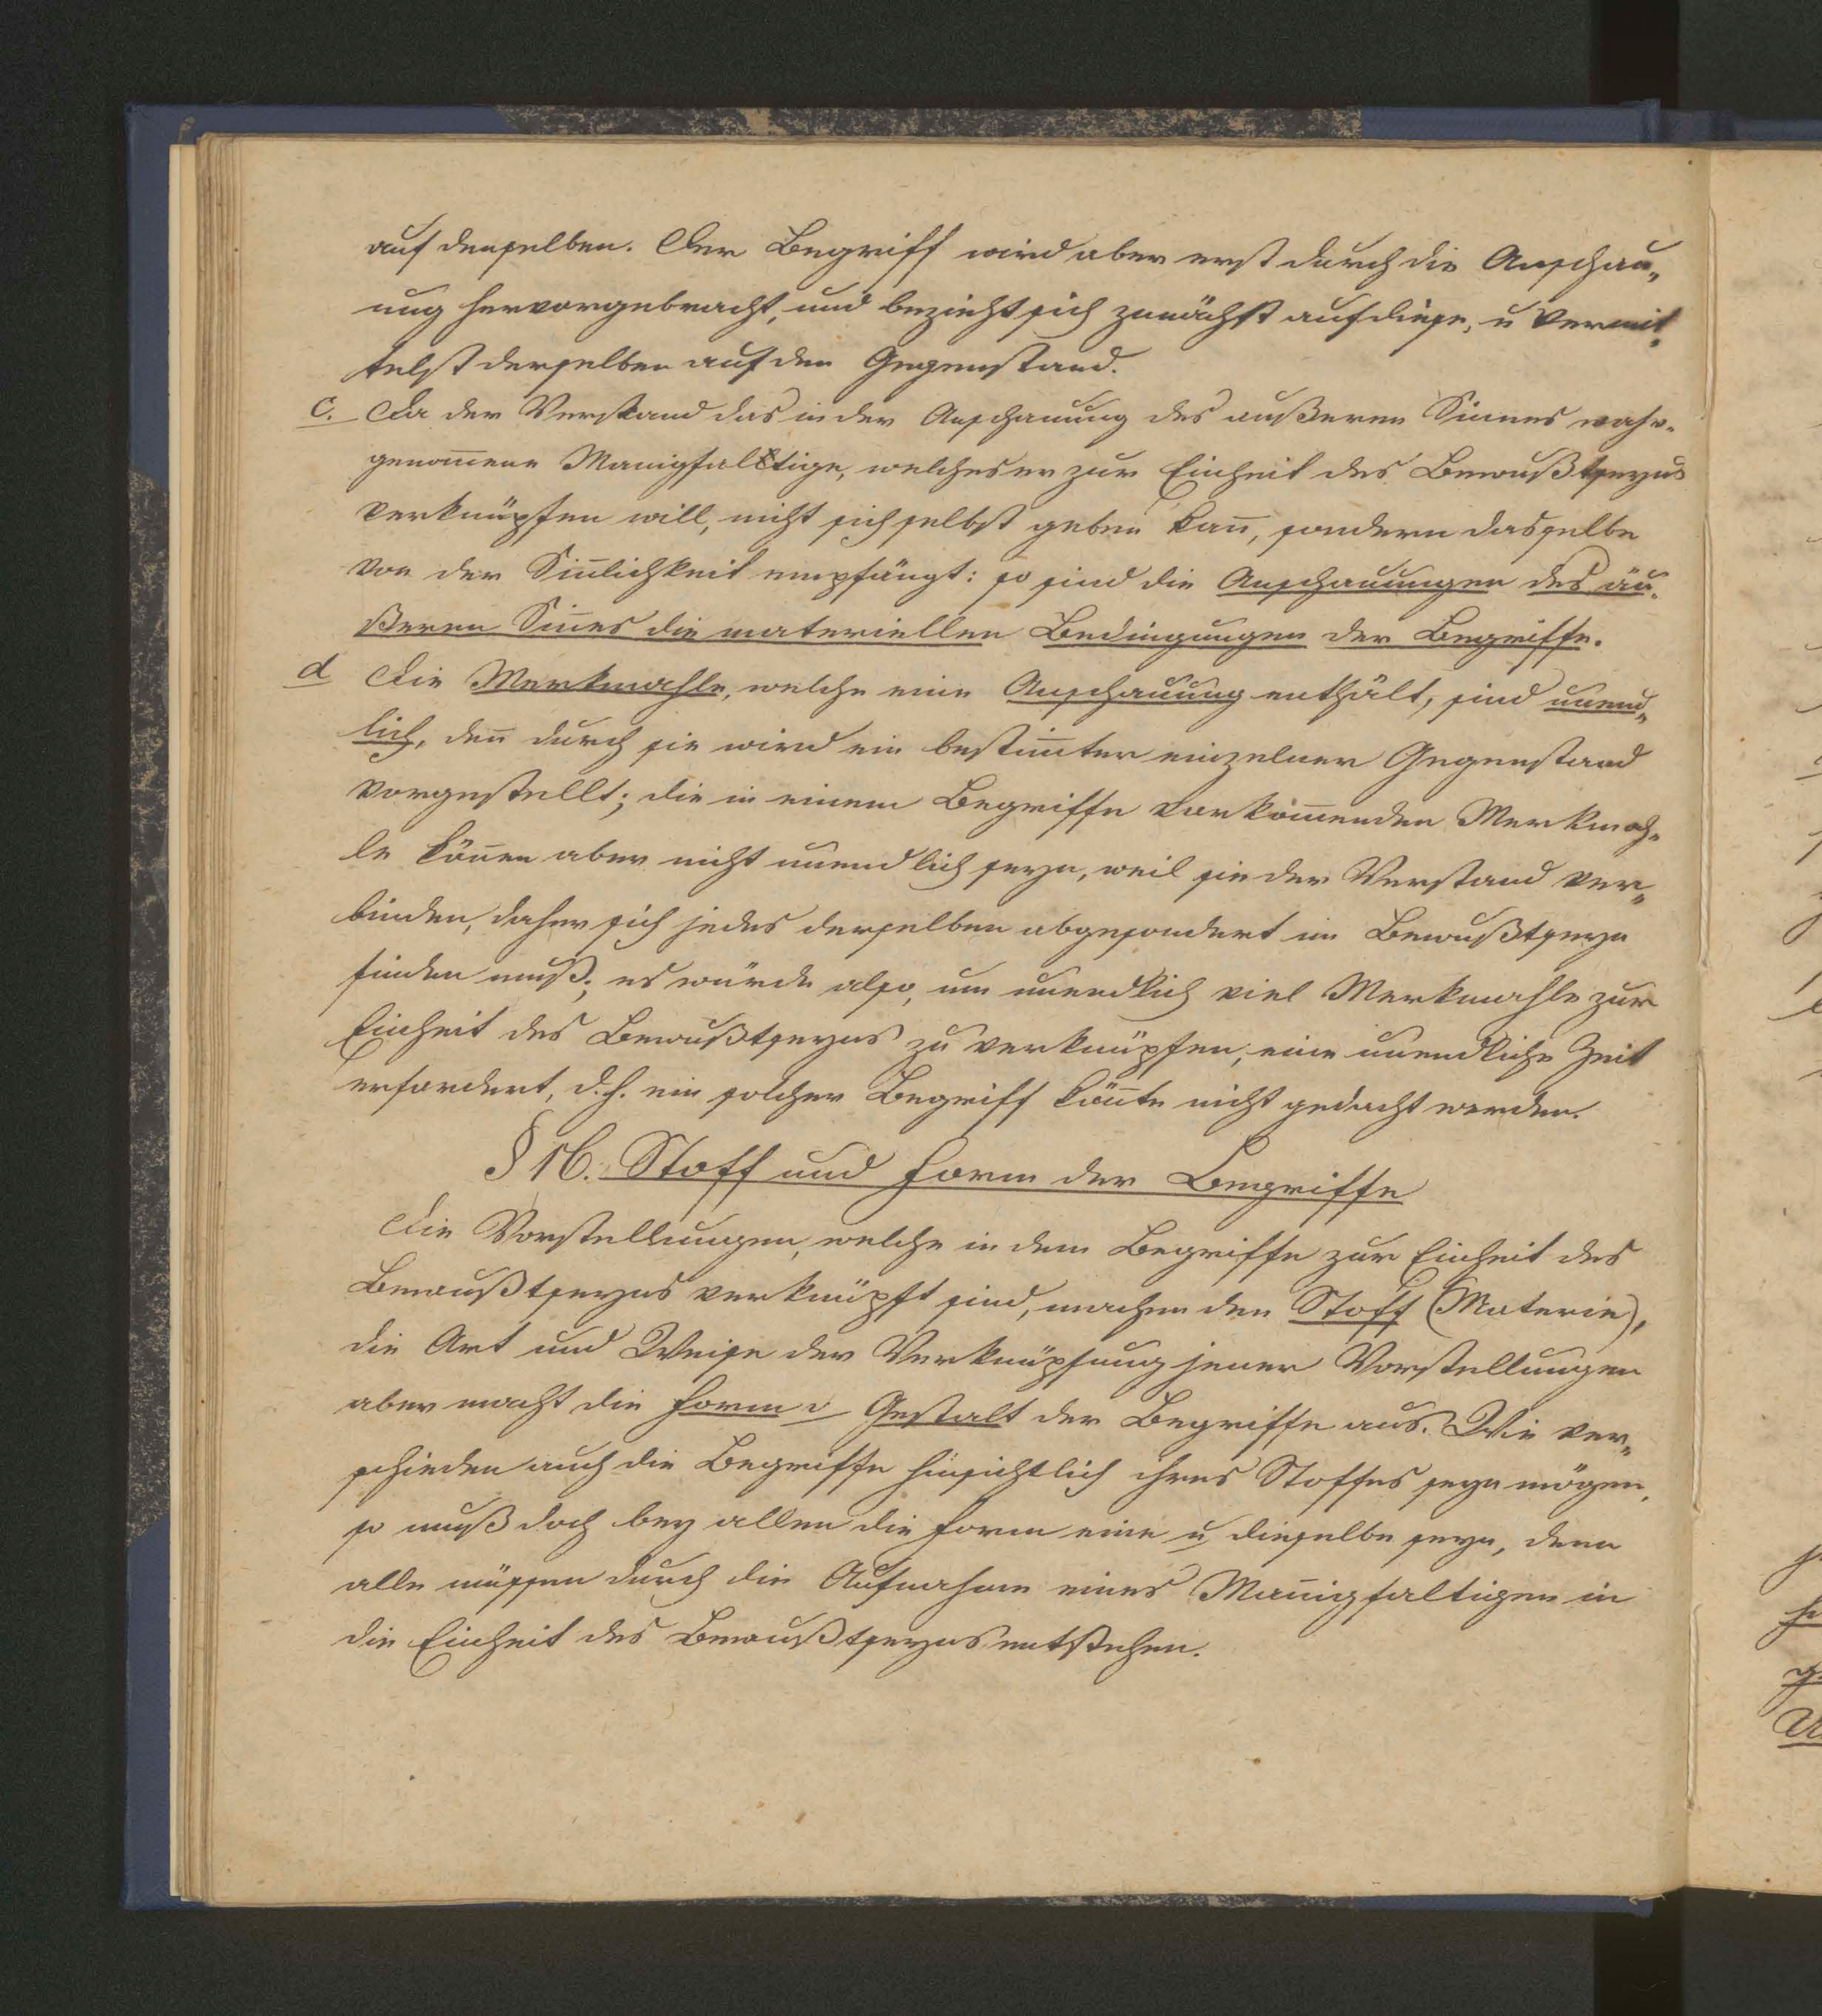 auf denselben. Der Begriff wird aber erst durch die Anschau„
ung hervorgebracht, und bezieht sich zunächst auf diese, u vermit„
telst derselben auf den Gegenstand.
c. Da der Verstand das in der Anschauung des äußeren Sinnes wahr-
genom̅ene Manigfaltige, welches er zur Einheit des Bewußtseyns
verknüpfen will, nicht sich selbst geben kan̅, sondern dasselbe
von der Sin̅lichkeit empfängt: so sind die Anschauungen des äu„
ßeren Sin̅es die materiellen Bedingungen der Begriffe.
d Die Merkmahle, welche eine Anschauung enthält, sind unend„
lich, den̅ durch sie wird ein bestim̅ter einzelner Gegenstand
vorgestellt; die in einem Begriffe vorkom̅enden Merkmah„
le kön̅en aber nicht unendlich seyn, weil sie der Verstand ver„
binden, daher sich jedes derselben abgesondert im Bewußtseyn
finden muß; es würde also, um unendlich viel Merkmahle zur
Einheit des Bewußtseyns zu verknüpfen, eine unendliche Zeit
erfordert, d.h. ein solcher Begriff kön̅te nicht gedacht werden.
§ 16. Stoff und Form der Begriffe
Die Vorstellungen, welche in dem Begriffe zur Einheit des
Bewußtseyns verknüpft sind, machen den Stoff (Materie),
die Art und Weise der Verknüpfung jener Vorstellungen
aber macht die Form o Gestalt der Begriffe aus. Wie ver„
schieden auch die Begriffe hinsichtlich ihres Stoffes seyn mögen,
so muß doch bey allen die Form eine u dieselbe seyn, denn
alle müssen durch die Aufnahme eines Man̅igfaltigen in
die Einheit des Bewußtseyns entstehen.